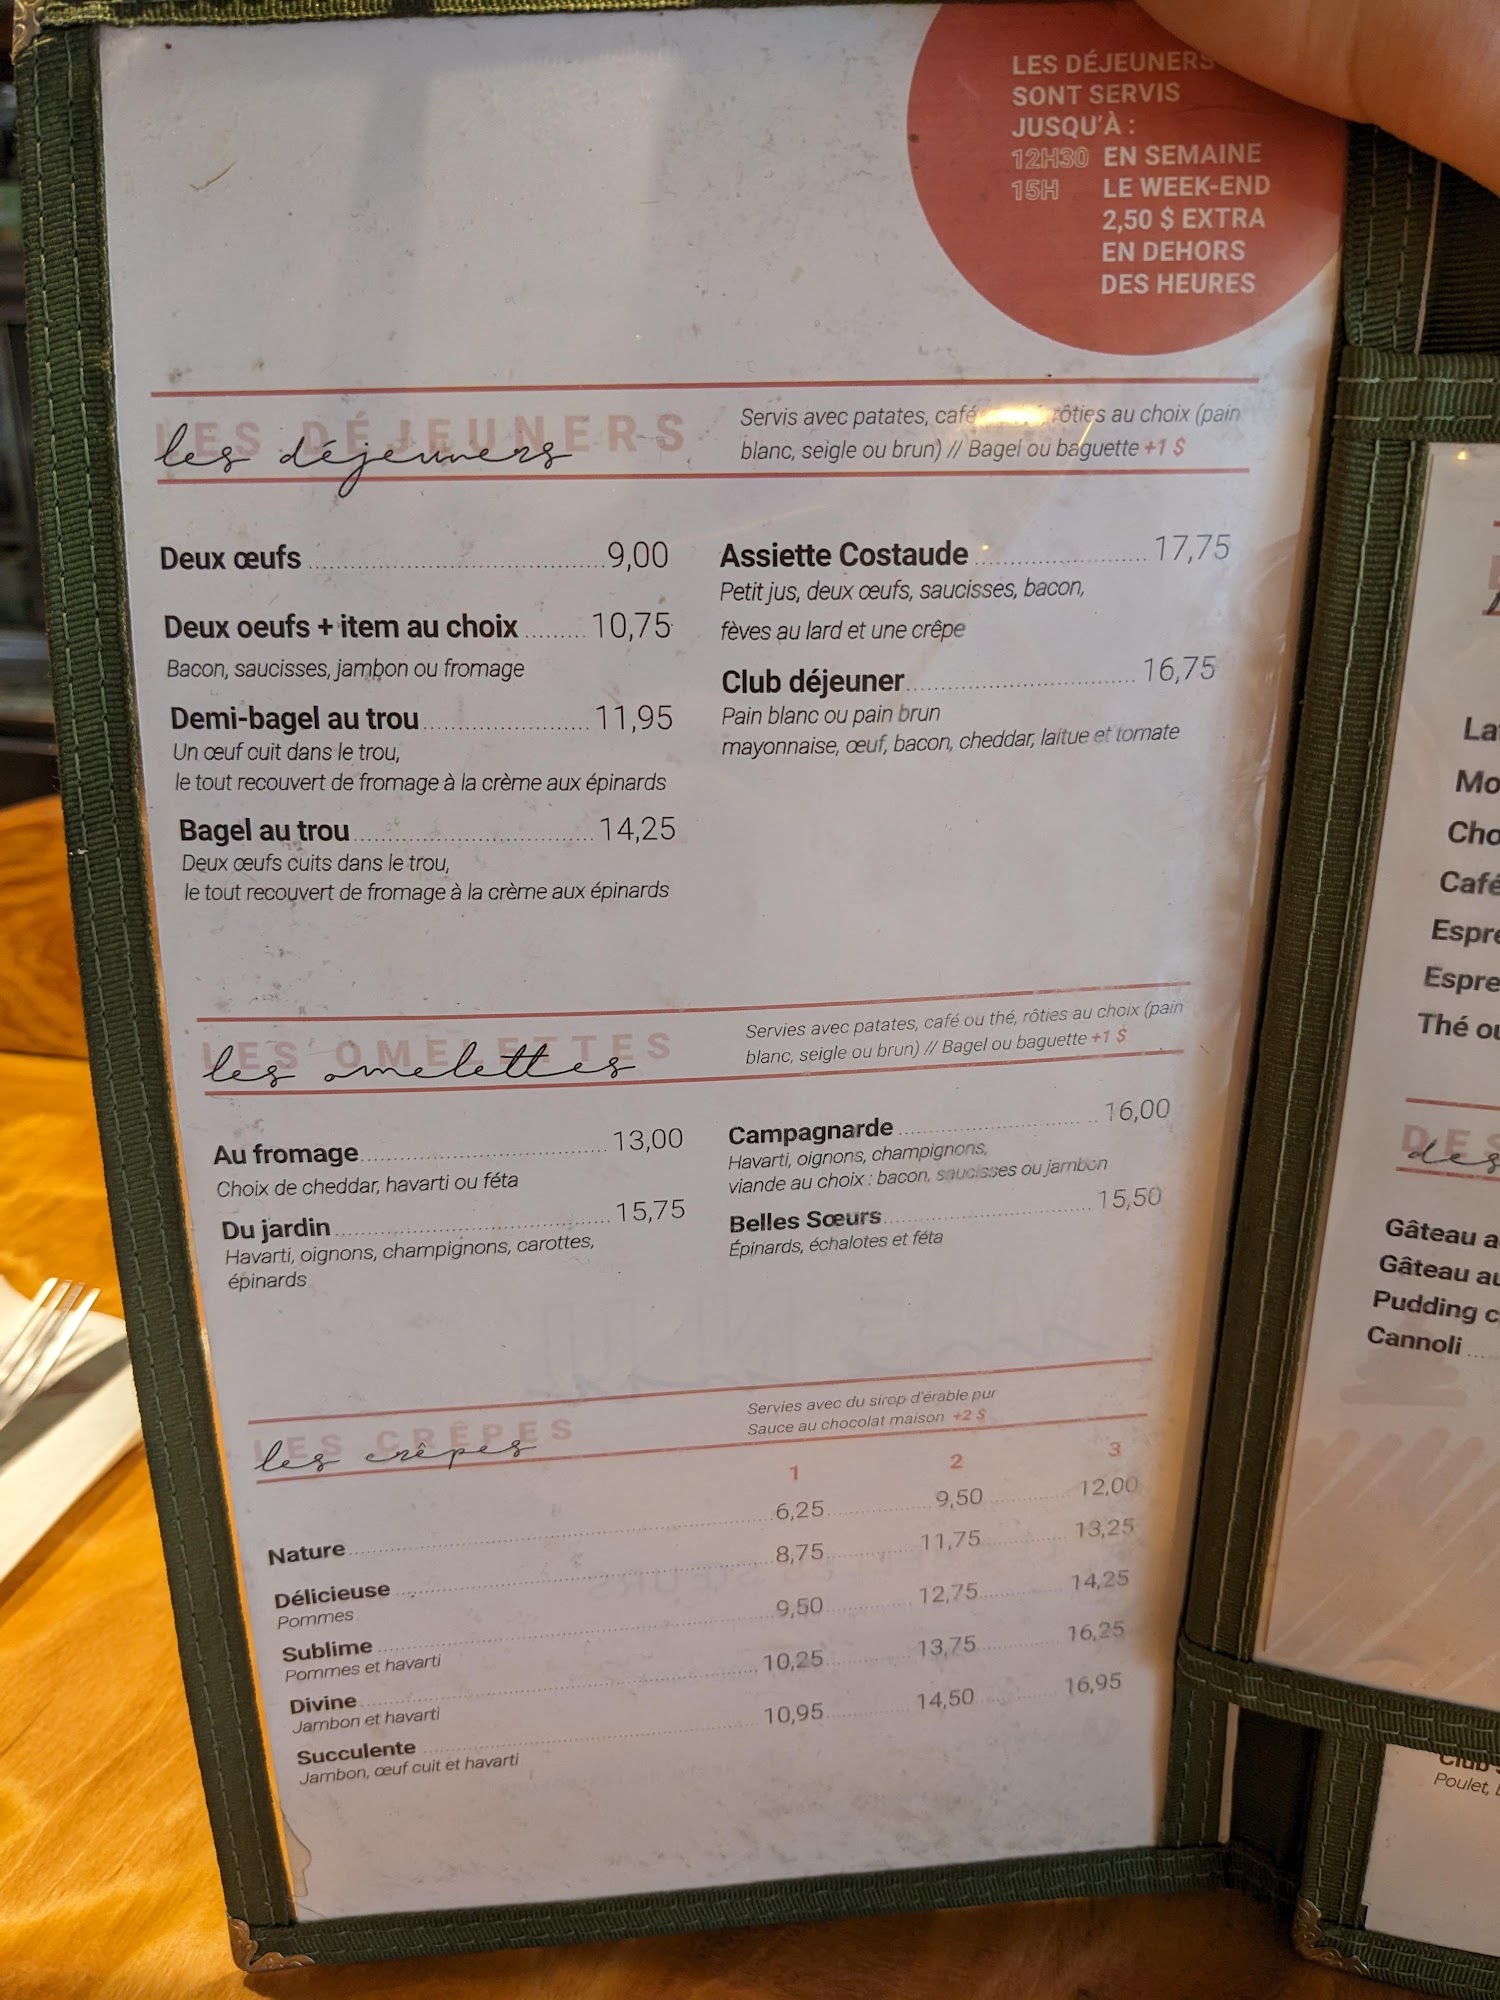 LES DÉJEUNERS
SONT SERVIS
JUSQU'À :
12H30 EN SEMAINE
15H LE WEEK-END
2,50 $ EXTRA
EN DEHORS
DES HEURES
LES DÉJEUNERS
les déjeuners
Servis avec patates, café rôties au choix (pain
blanc, seigle ou brun) // Bagel ou baguette +1 $
Deux œufs 9,00
Deux oeufs + item au choix 10,75
Bacon, saucisses, jambon ou fromage
Demi-bagel au trou 11,95
Un œuf cuit dans le trou,
le tout recouvert de fromage à la crème aux épinards
Bagel au trou 14,25
Deux œufs cuits dans le trou,
le tout recouvert de fromage à la crème aux épinards
Assiette Costaude 17,75
Petit jus, deux œufs, saucisses, bacon,
fèves au lard et une crêpe
Club déjeuner 16,75
Pain blanc ou pain brun
mayonnaise, œuf, bacon, cheddar, laitue et tomate
LES OMELETTES
les omelettes
Servies avec patates, café ou thé, rôties au choix (pain
blanc, seigle ou brun) // Bagel ou baguette +1 $
Au fromage 13,00
Choix de cheddar, havarti ou féta
Du jardin 15,75
Havarti, oignons, champignons, carottes,
épinards
Campagnarde 16,00
Havarti, oignons, champignons,
viande au choix : bacon, saucisses ou jambon
Belles Sœurs 15,50
Épinards, échalotes et féta
LES CRÊPES
les crêpes
Servies avec du sirop d'érable pur
Sauce au chocolat maison +2 $
1 2 3
Nature 6,25 9,50 12,00
Délicieuse 8,75 11,75 13,25
Pommes
Sublime 9,50 12,75 14,25
Pommes et havarti
Divine 10,25 13,75 16,25
Jambon et havarti
Succulente 10,95 14,50 16,95
Jambon, œuf cuit et havarti
Café
Thé
Gâteau
Gâteau
Pudding
Cannoli
Club
Poulet,